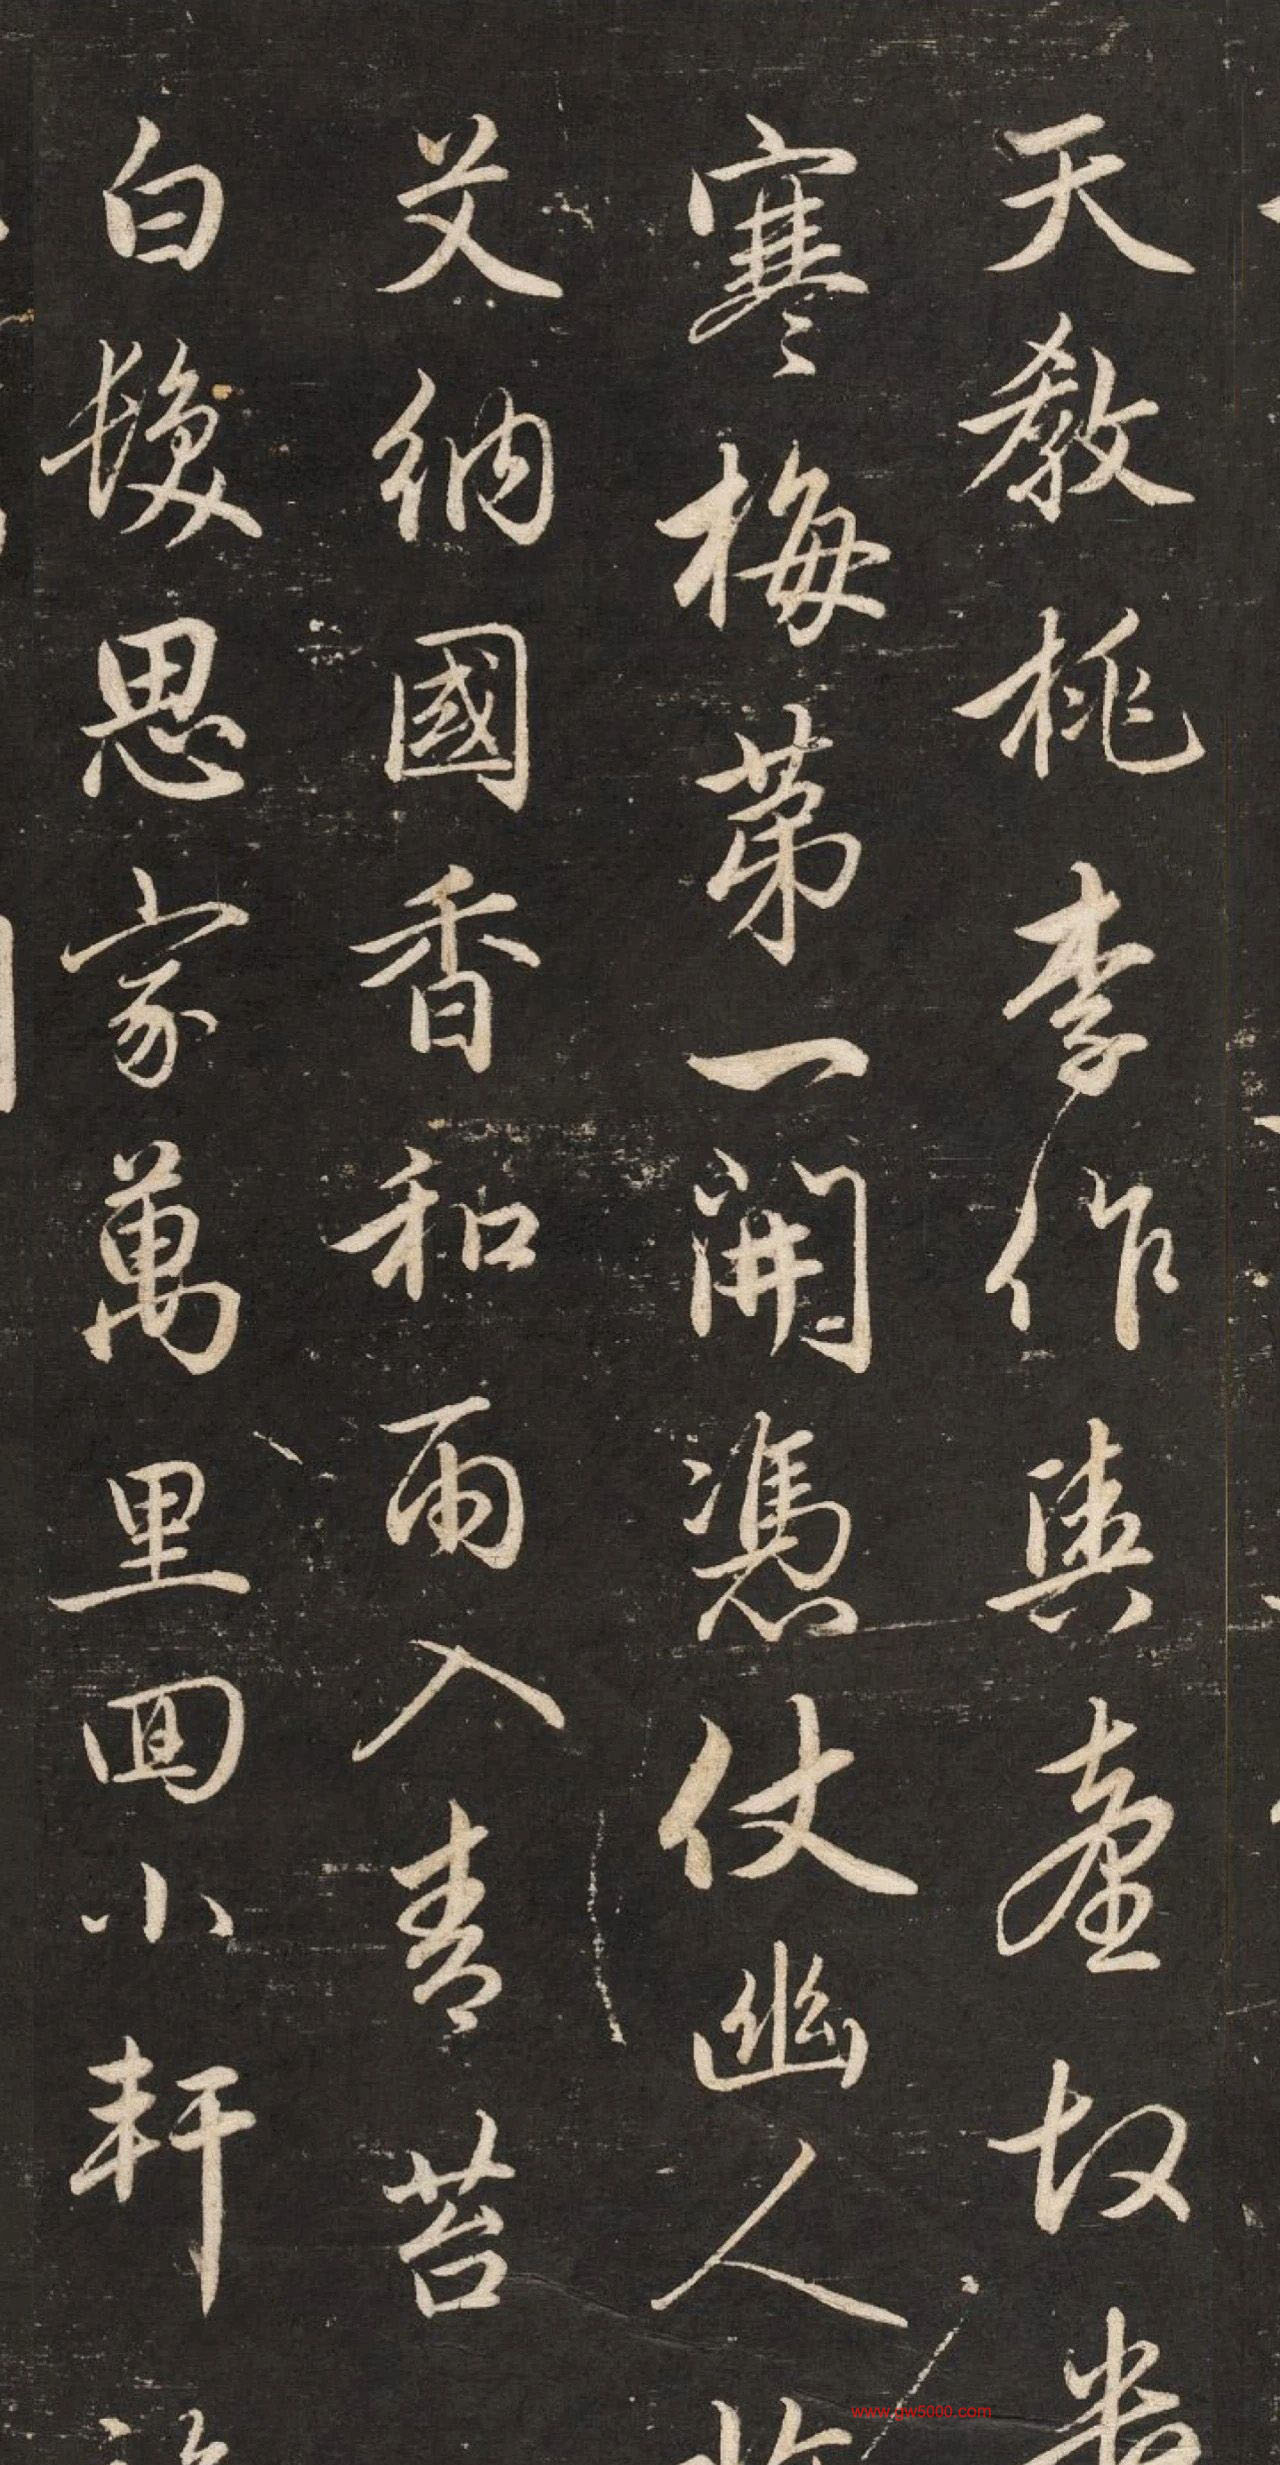 天教桃李作輿臺故
寒梅苐一開憑仗幽人
艾納國香和雨入青苔
白髮思家萬里囬小軒
www.gw5000.com